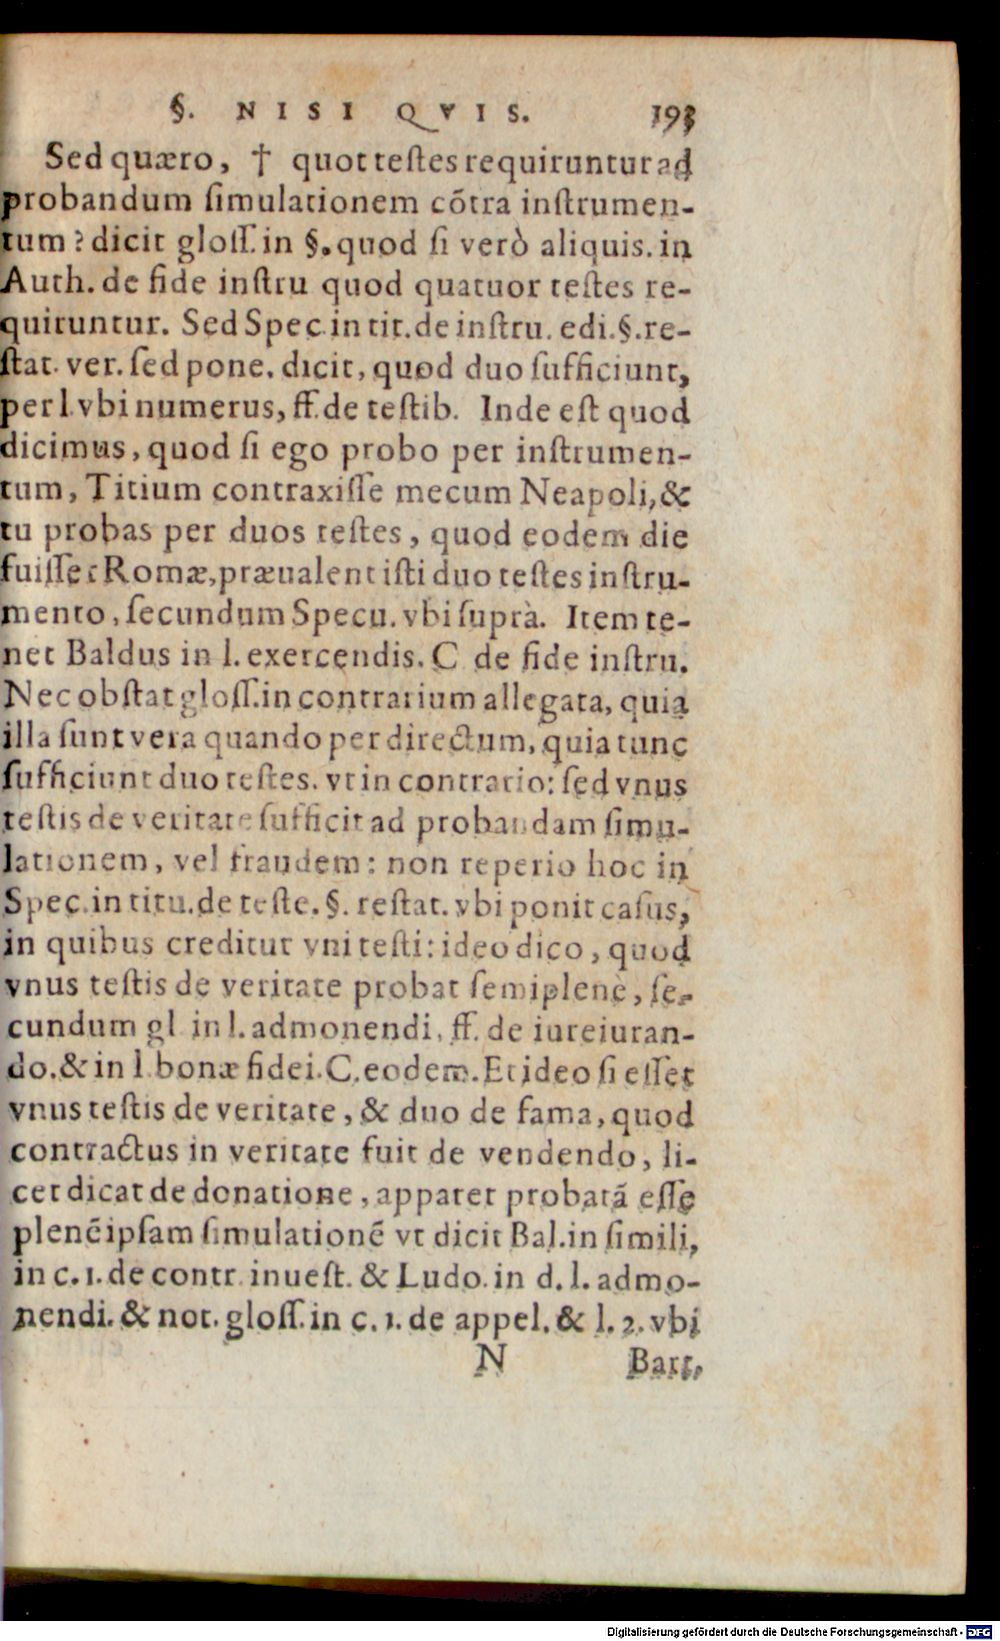 §. NISI QVIS. 193
Sed quæro, † quot testes requiruntur ad
probandum simulationem cõtra instrumen-
tum? dicit gloss. in §. quod si verò aliquis. in
Auth. de fide instru quod quatuor testes re-
quiruntur. Sed Spec. in tit. de instru. edi. §. re-
stat. ver. sed pone. dicit, quod duo sufficiunt,
per l. vbi numerus, ff. de testib. Inde est quod
dicimus, quod si ego probo per instrumen-
tum, Titium contraxisse mecum Neapoli, &
tu probas per duos testes, quod eodem die
fuisset Romæ, præualent isti duo testes instru-
mento, secundum Specu. vbi suprà. Item te-
net Baldus in l. exercendis. C de fide instru.
Nec obstat gloss. in contrarium allegata, quia
illa sunt vera quando per directum, quia tunc
sufficiunt duo testes. vt in contrario: sed vnus
testis de veritate sufficit ad probandam simu-
lationem, vel fraudem: non reperio hoc in
Spec. in titu. de teste. §. restat. vbi ponit casus,
in quibus creditur vni testi: ideo dico, quod
vnus testis de veritate probat semiplenè, se-
cundum gl in l. admonendi, ff. de iureiuran-
do. & in l bonæ fidei. C. eodem. Et ideo si esset
vnus testis de veritate, & duo de fama, quod
contractus in veritate fuit de vendendo, li-
cet dicat de donatione, apparet probatã esse
plenẽ ipsam simulationẽ vt dicit Bal. in simili,
in c. 1. de contr. inuest. & Ludo. in d. l. admo-
nendi. & not. gloss. in c. 1. de appel. & l. 2. vbi
N Bart.
Digitalisierung gefördert durch die Deutsche Forschungsgemeinschaft - DFG